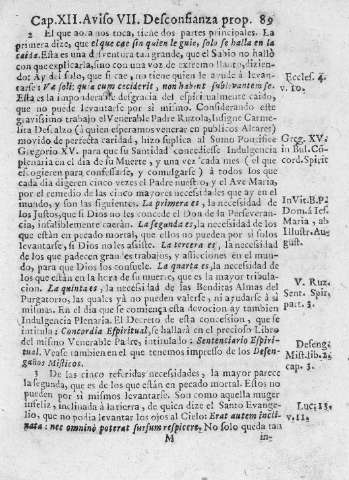 Cap.XII. Aviso VII. Desconfianza prop. 89
2 El que aora nos toca, tiene dos partes principales. La
primera dize, que el que cae sin quien le guie, solo se halla en la
caida. Esta es una desventura tan grande, que el Sabio no halló
con que explicarla, sino con una voz de extremo llanto, diziendo:
Ay del solo, que si cae, no tiene quien le ayude à levantarse:
Væ soli: quia cum ceciderit, non habet sublevantem se.
Esta es la imponderable desgracia del espiritualmente caido,
que no puede levantarse por si mismo. Considerando este
gravisimo trabajo el Venerable Padre Ruzola, Insigne Carmelita
Descalzo (à quien esperamos venerar en publicos Altares)
movido de perfecta caridad, hizo suplica al Sumo Pontifice
Gregorio XV. para que su Santidad concediesse Indulgencia
plenaria en el dia de su Muerte, y una vez cada mes (el que
escogieren para confessarse, y comulgarse) à todos los que
cada dia digeren cinco vezes el Padre nuestro, y el Ave Maria,
por el remedio de las cinco mayores necessidades que ay en el
mundo, y son las siguientes. La primera es, la necessidad de
los Justos, que si Dios no les concede el Don de la Perseverancia,
infaliblemente caeràn. La segunda es, la necessidad de los
que estàn en pecado mortal, que ellos no pueden por si solos
levantarse, si Dios no les assiste. La tercera es, la necessidad
de los que padecen grandes trabajos, y aflicciones en el mundo,
para que Dios los consuele. La quarta es, la necessidad de
los que estàn en la hora de su muerte, que es la mayor tribulacion.
La quinta es, la necessidad de las Benditas Almas del
Purgatorio, las quales yà no pueden valerse, ni ayudarse à si
mismas. En el dia que se comiença esta devocion ay tambien
Indulgencia Plenaria. El Decreto de esta concession, que se
intitula: Concordia Espiritual, se hallarà en el precioso Libro
del mismo Venerable Padre, intitulado: Sentenciario Espiritual.
Vease tambien en el que tenemos impresso de los Desengaños
Misticos.
3 De las cinco referidas necessidades, la mayor parece
la segunda, que es de los que estàn en pecado mortal. Estos no
pueden por si mismos levantarse. Son como aquella muger
infeliz, inclinada à la tierra, de quien dize el Santo Evangelio,
que no podia levantar los ojos al Cielo: Erat autem inclinata:
nec omninò poterat sursum respicere. No solo queda tan
M in-
Eccles. 4.
v. 10.
Greg. XV.
in Bul. Concord.
Spirit
In Vit. B.P.
Dom. à Jes.
Maria, ab
Illustr. August.
V. Ruz.
Sent. Spir.
part. 3.
Deseng.
Mist. lib. 2.
cap. 3.
Luc. 13.
v. 11.